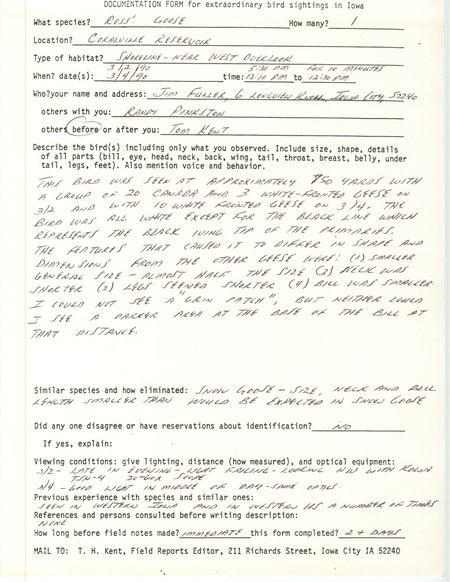 DOCUMENTATION FORM for extraordinary bird sightings in Iowa
What species? ROSS' GOOSE How many? 1
Location? CORALVILLE RESERVOIR
Type of habitat? SHORELINE - NEAR WEST OVERLOOK
3/2/90 5:30 PM FOR 10 MINUTES
When? date(s): 3/4/90 time: 12:10 PM to 12:30 PM
Who?your name and address: JIM FULLER, 6 LONGVIEW KNOLL, IOWA CITY, 52240
others with you: RANDY PINKSTON
others before or after you: TOM KENT
Describe the bird(s) including only what you observed. Include size, shape, details
of all parts (bill, eye, head, neck, back, wing, tail, throat, breast, belly, under
tail, legs, feet). Also mention voice and behavior.
THIS BIRD WAS SEEN AT APPROXIMATELY 750 YARDS WITH
A GROUP OF 20 CANADA AND 3 WHITE-FRONTED GEESE ON
3/2 AND WITH 10 WHITE FRONTED GEESE ON 3/4. THE
BIRD WAS ALL WHITE EXCEPT FOR THE BLACK LINE WHICH
REPRESENTS THE BLACK WING TIP OF THE PRIMARIES.
THE FEATURES THAT CAUSED IT TO DIFFER IN SHAPE AND
DIMENSIONS FROM THE OTHER GEESE WERE: (1) SMALLER
GENERAL SIZE - ALMOST HALF THE SIZE (2) NECK WAS
SHORTER (3) LEGS SEEMED SHORTER (4) BILL WAS SMALLER
I COULD NOT SEE A "GRIN PATCH", BUT NEITHER COULD
I SEE A DARKER AREA AT THE BASE OF THE BILL AT
THAT DISTANCE.
Similar species and how eliminated: SNOW GOOSE - SIZE, NECK AND BILL
LENGTH SMALLER THAN WOULD BE EXPECTED IN SNOW GOOSE
Did any one disagree or have reservations about identification? NO
If yes, explain:
Viewing conditions: give lighting, distance (how measured), and optical equipment:
3/2 - LATE IN EVENING - LIGHT FADING - LOOKING NW WITH KOWA
TSN-4 20-60X SCOPE
3/4 - GOOD LIGHT IN MIDDLE OF DAY - SAME OPTICS.
Previous experience with species and similar ones:
SEEN IN WESTERN IOWA AND IN WESTERN US A NUMBER OF TIMES
References and persons consulted before writing description:
NONE
How long before field notes made? IMMEDIATE this form completed? 2+ DAYS
MAIL TO: T. H. Kent, Field Reports Editor, 211 Richards Street, Iowa City IA 52240